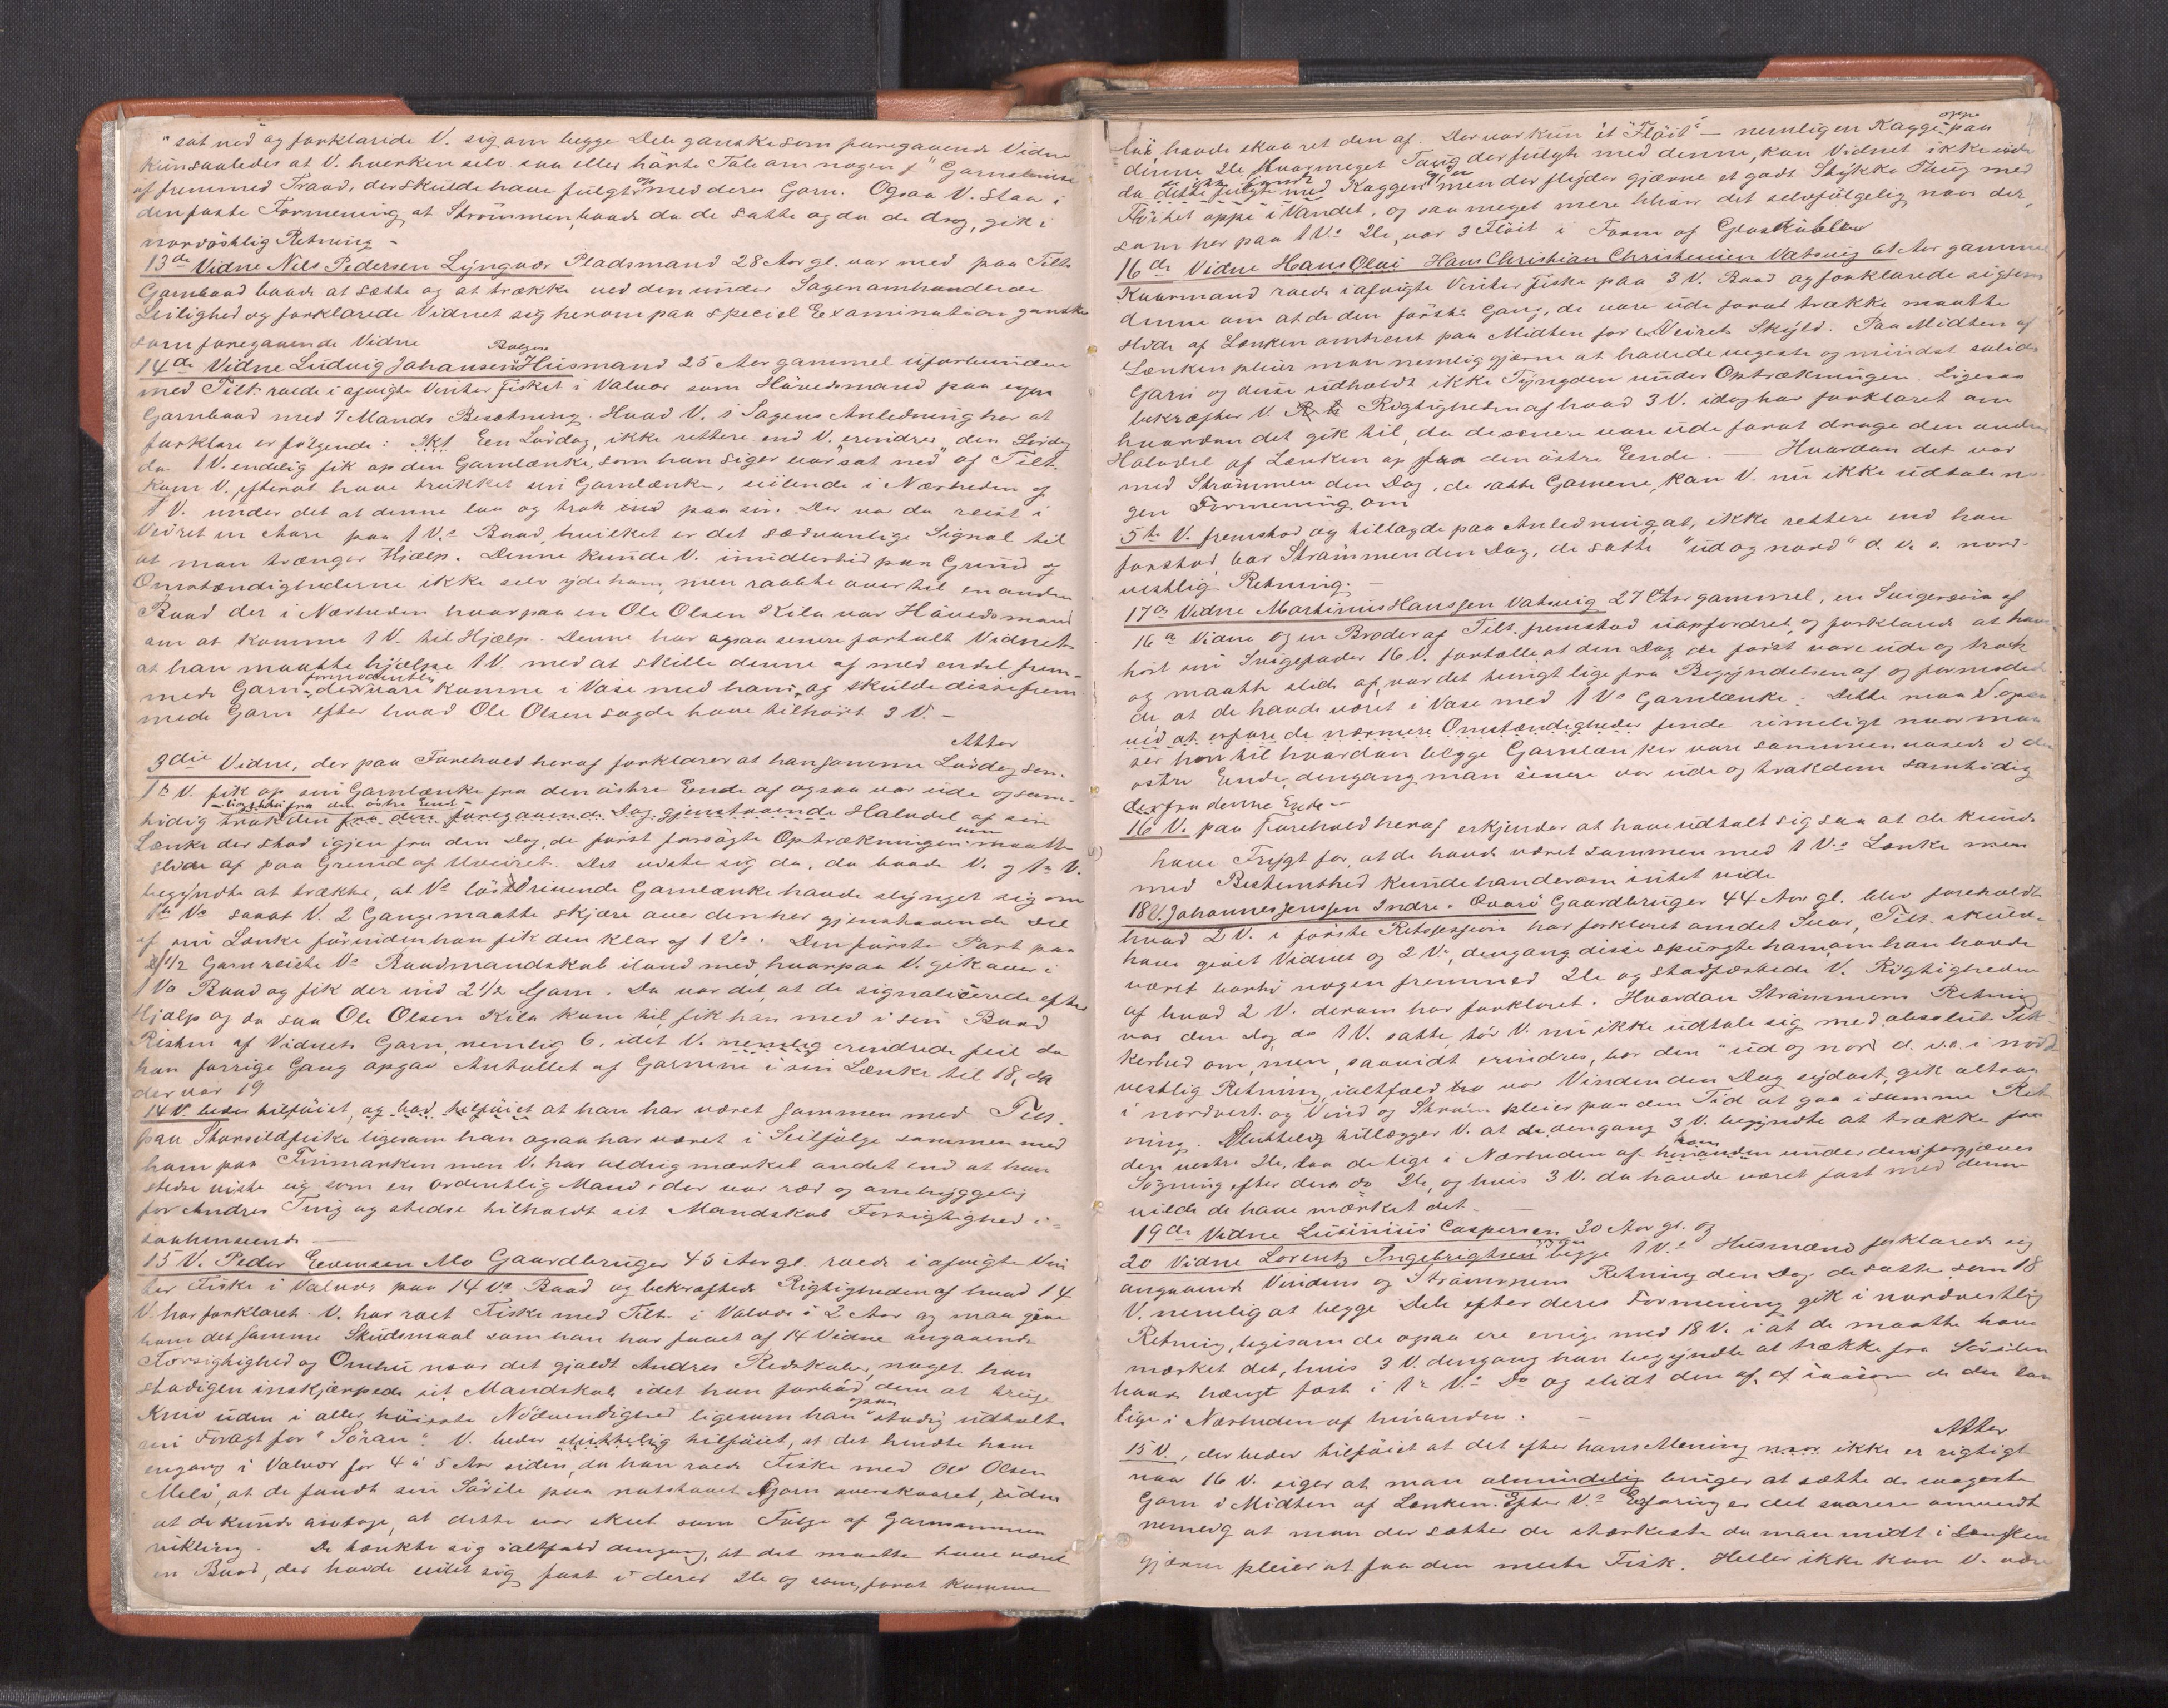 "sat ned og forklarede V. sig om begge Dele ganske som foregaaende Vidne
kun saaledes at V. hverken selv saa eller hørte Tale om nogen "Garnslenise
af fremmed Traad, der skulde have fulgt op med deres Garn. Ogsaa V. staa i
den faste Formening at Strømmen, baade da de satte og da de drog, gik i
nordøstlig Retning -
13de Vidne Nils Pedersen Lyngvær Pladsmand 28 Aar gl. var med paa Tilts
Garnbaad baade at sætte og at trække ved den under Sagen omhandlede
Leilighed og forklarede Vidnet sig herom paa speciel Examination ganske
som foregaaende Vidne
14de Vidne Ludvig Johansen Husmand 25 Aar gammel uforbunden
med Tilt. roede i afvigte Vinter Fisket i Valvær som Høvedsmand paa egen
Garnbaad med 7 Mands Besætning. Hvad V. i Sagens Anledning har at
forklare er følgende: Een Lørdag, ikke rettere end V. erindrer den Lørdag
da 1 V. endelig fik op den Garnlænke, som han siger var "sat ned" af Tilt.
kom V. efterat have trukket sin Garnlænke, seilende i Nærheden af
1 V. under det at denne laa og trak ind paa sin. Der var da reist i
Veiret en Aare paa 1 V.s Baad, hvilket er det sædvanlige Signal til
at man trænger Hjælp. Denne kunde V. imidlertid paa Grund af
Omstændighederne ikke selv yde ham, men raabte over til en anden
Baad der i Nærheden hvorpaa en Ole Olsen Kila var Høvedsmand
om at komme 1 V. til Hjælp. Denne har ogsaa senere fortalt Vidnet
at han maatte hjælpe 1 V. med at skille denne af med endel frem-
mede Garn, der formodentlig vare komne i Vase med hans, og skulde disse frem
mede Garn efter hvad Ole Olsen sagde have tilhørt 3 V. -
Atter
3die Vidne, der paa Forehold heraf forklarer at han samme Lørdag som
1 V. fik op sin Garnlænke fra den østre Ende af ogsaa var ude og sam-
tidig trak den ligeledes fra den østre Ende fra den foregaaende Dag gjenstaaende Halvdel af sin
Lænke der stod igjen fra den Dag, de først forsøgte Optrækningen men maatte
slide af paa Grund af Uveiret. Det viste sig da, da baade V. og 1te V.
begyndte at trække, at V.s løsdrivende Garnlænke havde slynget sig om
1te V.s saaat V. 2 Gange maatte skjære over den her gjenstaaende Del
af sin Lænke førinden han fik den klar af 1 V.s. Den første Part paa
3 1/2 Garn reiste V.s Baadmandskab iland med, hvorpaa V. gik over i
1 V.s Baad og fik der ind 2 1/2 Garn. Da var det, at de signaliserede efter
Hjælp og da saa Ole Olsen Kila kom til, fik han med i sin Baad
Resten af Vidnets Garn, nemlig 6, idet V. nemlig erindrede feil da
han forrige Gang opgav Antallet af Garnene i sin Lænke til 18, da
der var 19
14 V. beder tilføiet, og bad tilføiet at han har været sammen med Tilt.
paa Storsildfiske ligesom han ogsaa har været i Seilfølge sammen med
ham paa Finmarken men V. har aldrig mærket andet end at han
stedse viste sig som en ordentlig Mand der var ræd og omhyggelig
for Andres Ting og stedse tilholdt sit Mandskab Forsigtighed i
saahenseende -
15 V. Peder Evensen Mo Gaardbruger 45 Aar gl. roede i afvigte Vin
ter Fiske i Valvær paa 14 V.s Baad og bekræftede Rigtigheden af hvad 14
V. har forklaret. V. har roet Fiske med Tilt. i Valvær i 2 Aar og maa give
ham det samme Skudsmaal som han har faaet af 14 Vidne angaaende
Forsigtighed og Omhu naar det gjaldt Andres Redskaber, noget han
stadigen inskjærpede sit Mandskab idet han forbød dem at bruge
Kniv uden i aller høieste Nødvendighed ligesom han ogsaa stadig udtalte
sin Foragt for "Søran". V. beder slutteligt tilføiet, at det hændte ham
engang i Valvær for 4 à 5 Aar siden, da han roede Fiske med Ole Olsen
Melø, at de fandt sin Søøile paa natstaaet Garn overskaaret, uden
at de kunde antage, at dette var skeet som Følge af Garnsammen
vikling. De tænkte sig ialtfald dengang, at det maatte have været
en Baad, der havde seilet sig fast i deres Ile og som, forat komme
løs, havde skaaret den af. Der var kun ét "Fløit" - nemligen Kaggi oppe paa
denne Ile. Hvormeget Taug der fulgte med denne, kan Vidnet ikke vide
da dette fulgte med Kaggen, men der flyder gjærne et godt Stykke Taug med
Fløitet oppe i Vandet, og saa meget mere bliver det selvfølgelig naar der,
som her paa 1 V.s Ile, var 3 Fløit i Form af Glaskubler
16de Vidne Hans Olai Hans Christian Christensen Vatsvig Aar gammel
Kaarmand roede i afvigte Vinter Fiske paa 3 V. Baad og forklarede sig som
denne om at de den første Gang, de vare ude forat trække maatte
slide af Lænken omtrent paa Midten for Veirets Skyld. Paa Midten af
Lænken pleier man nemlig gjærne at have de vegeste og mindst solide
Garn og disse udholdt ikke Tyngden under Optrækningen. Ligesaa
bekræfter V. Rigtigheden af hvad 3 V. idag har forklaret om
hvordan det gik til, da de senere vare ude forat drage den anden
Halvdel af Lænken op fra den østre Ende. - Hvordan det var
med Strømmen den Dag, de satte Garnene, kan V. nu ikke udtale no
gen Formening om
5te V. fremstod og tillagde paa Anledning at, ikke rettere end han
forstod, bar Strømmen den Dag, de satte "ud og nord" d. v. s. nord-
vestlig Retning. -
17de Vidne Martinus Hanssen Vatsvig 27 Aar gammel, en Svigersøn af
16de Vidne og en Broder af Tilt. fremstod uopfordret og forklarede at have
hørt sin Svigerfader 16 V. fortælle at den Dag de først vare ude og trak
og maatte slide af, var det tungt lige fra Begyndelsen af og formodede
de at de havde været i Vase med 1 V.s Garnlænke. Dette maa V. ogsaa
ved at erfare de nærmere Omstændigheder finde rimeligt naar man
ser hen til hvordan begge Garnlænker vare sammenvasede i den
østre Ende, dengang man senere var ude og trak dem samtidig
der fra denne Ende -
16 V. paa Forehold heraf erkjender at have udtalt sig saa at de kunde
have Frygt for, at de havde været sammen med 1 V.s Lænke men
med Bestemthed kunde han derom intet vide
18 V. Johannes Jenssen Indre-Qvarø Gaardbruger 44 Aar gl. blev foreholdt
hvad 2 V. i første Retssession har forklaret om det Svar, Tilt. skulde
have givet Vidnet og 2 V., dengang disse spurgte ham, om han havde
været borti nogen fremmed Ile og stadfæstede V. Rigtigheden
af hvad 2 V. derom har forklaret. Hvordan Strømmens Retning
var den Dag da 1 V. satte, tør V. nu ikke udtale sig med absolut Sik
kerhed om, men, saavidt erindres, bar den "ud og nord" d. v. s. i nord
vestlig Retning, ialtfald var Vinden den Dag sydost, gik altsaa
i nordvest og Vind og Strøm pleier paa den Tid at gaa i samme Ret
ning. Sluttelig tillægger V. at de dengang 3 V. begyndte at trække fra
den vestre Ile, laa de lige i Nærheden af ham hinanden under dens forgjæves
Søgning efter dens do Ile, og hvis 3 V. da havde været fast med denne
vilde de have mærket det -
19de Vidne Lusinius Caspersen 30 Aar gl. og
20 Vidne Lorentz Ingebrigtsen begge 1 V.s Husmænd forklarede sig
angaaende Vindens og Strømmens Retning den Dag de satte som 18
V. nemlig at begge Dele efter deres Formening gik i nordvestlig
Retning, ligesom de ogsaa ere enige med 18 V. i at de maatte have
mærket det, hvis 3 V. dengang han begyndte at trække fra Søøilen
havde hængt fast i 1te V.s Do og slidt den af, eftersom de der laa
lige i Nærheden af hinanden. -
Atter
15 V., der beder tilføiet at det efter hans Mening ikke er rigtigt
naar 16 V. siger at man almindelig bruger at sætte de vageste
Garn i Midten af Lænken. Efter V.s Erfaring er det snarere omvendt
nemlig at man der sætter de stærkeste da man midt i Lænken
gjærne pleier at faa den meste Fisk. Heller ikke kan V. være